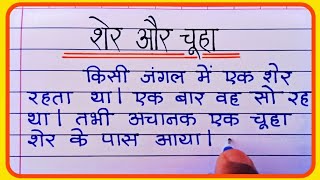 शेर और चूहा
किसी जंगल में एक शेर
रहता था। एक बार वह सो रह
था। तभी अचानक एक चूहा
शेर के पास आया।